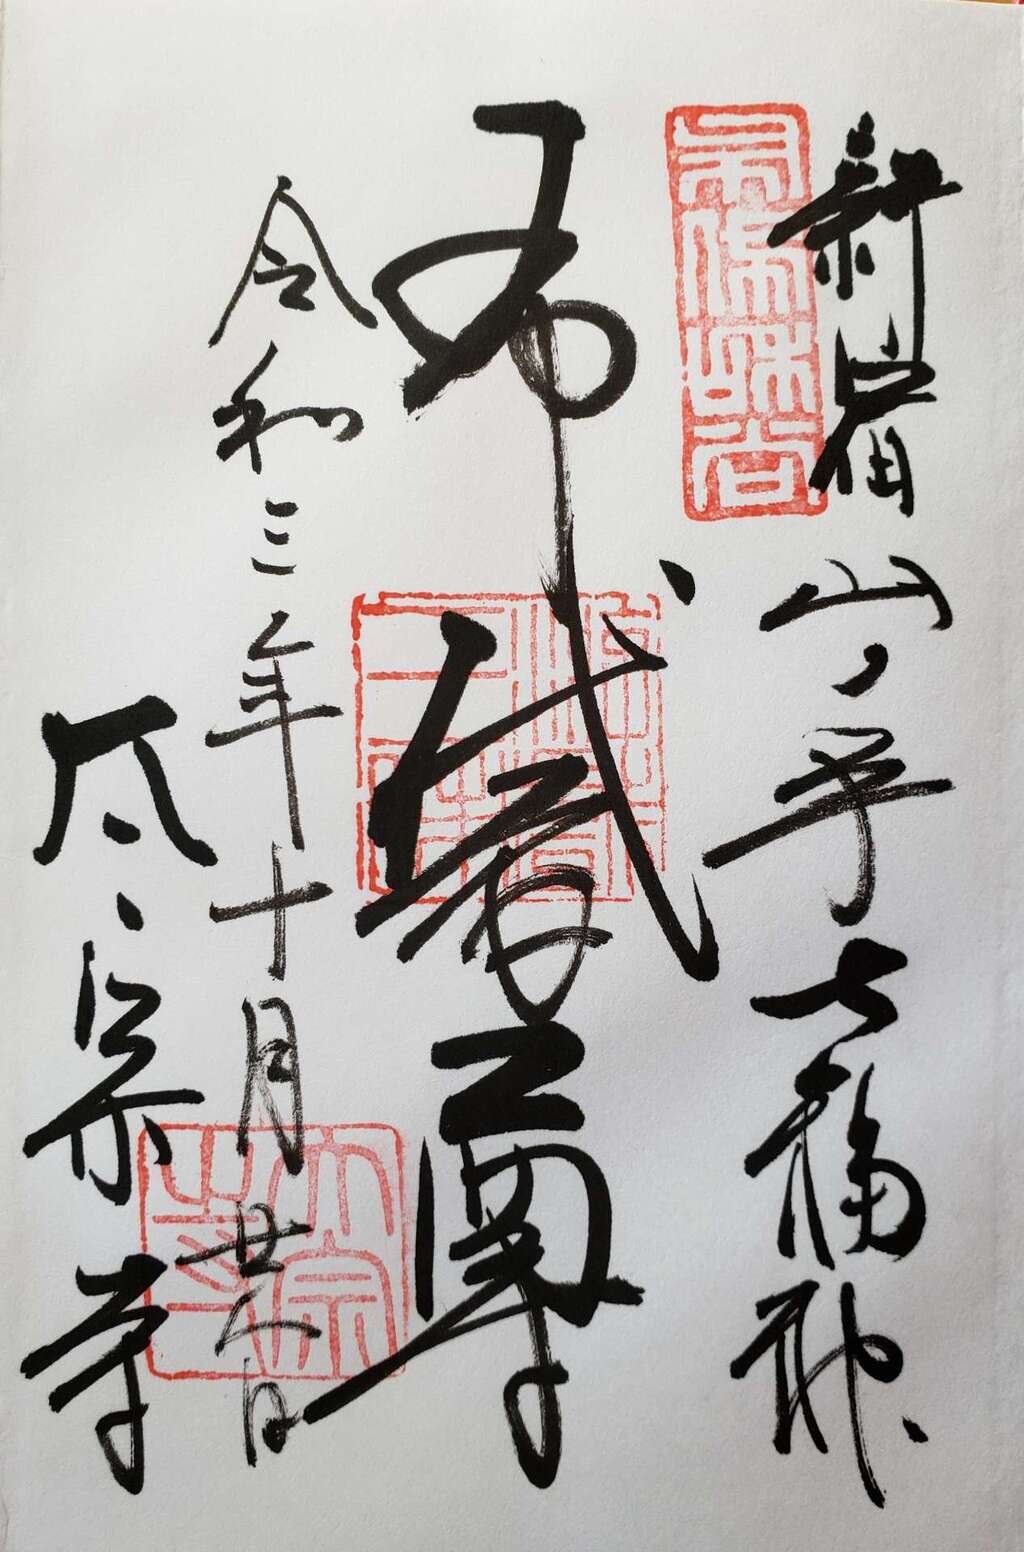 新宿山ノ手七福神
布袋尊
令和三年十月廿八日
太宗寺